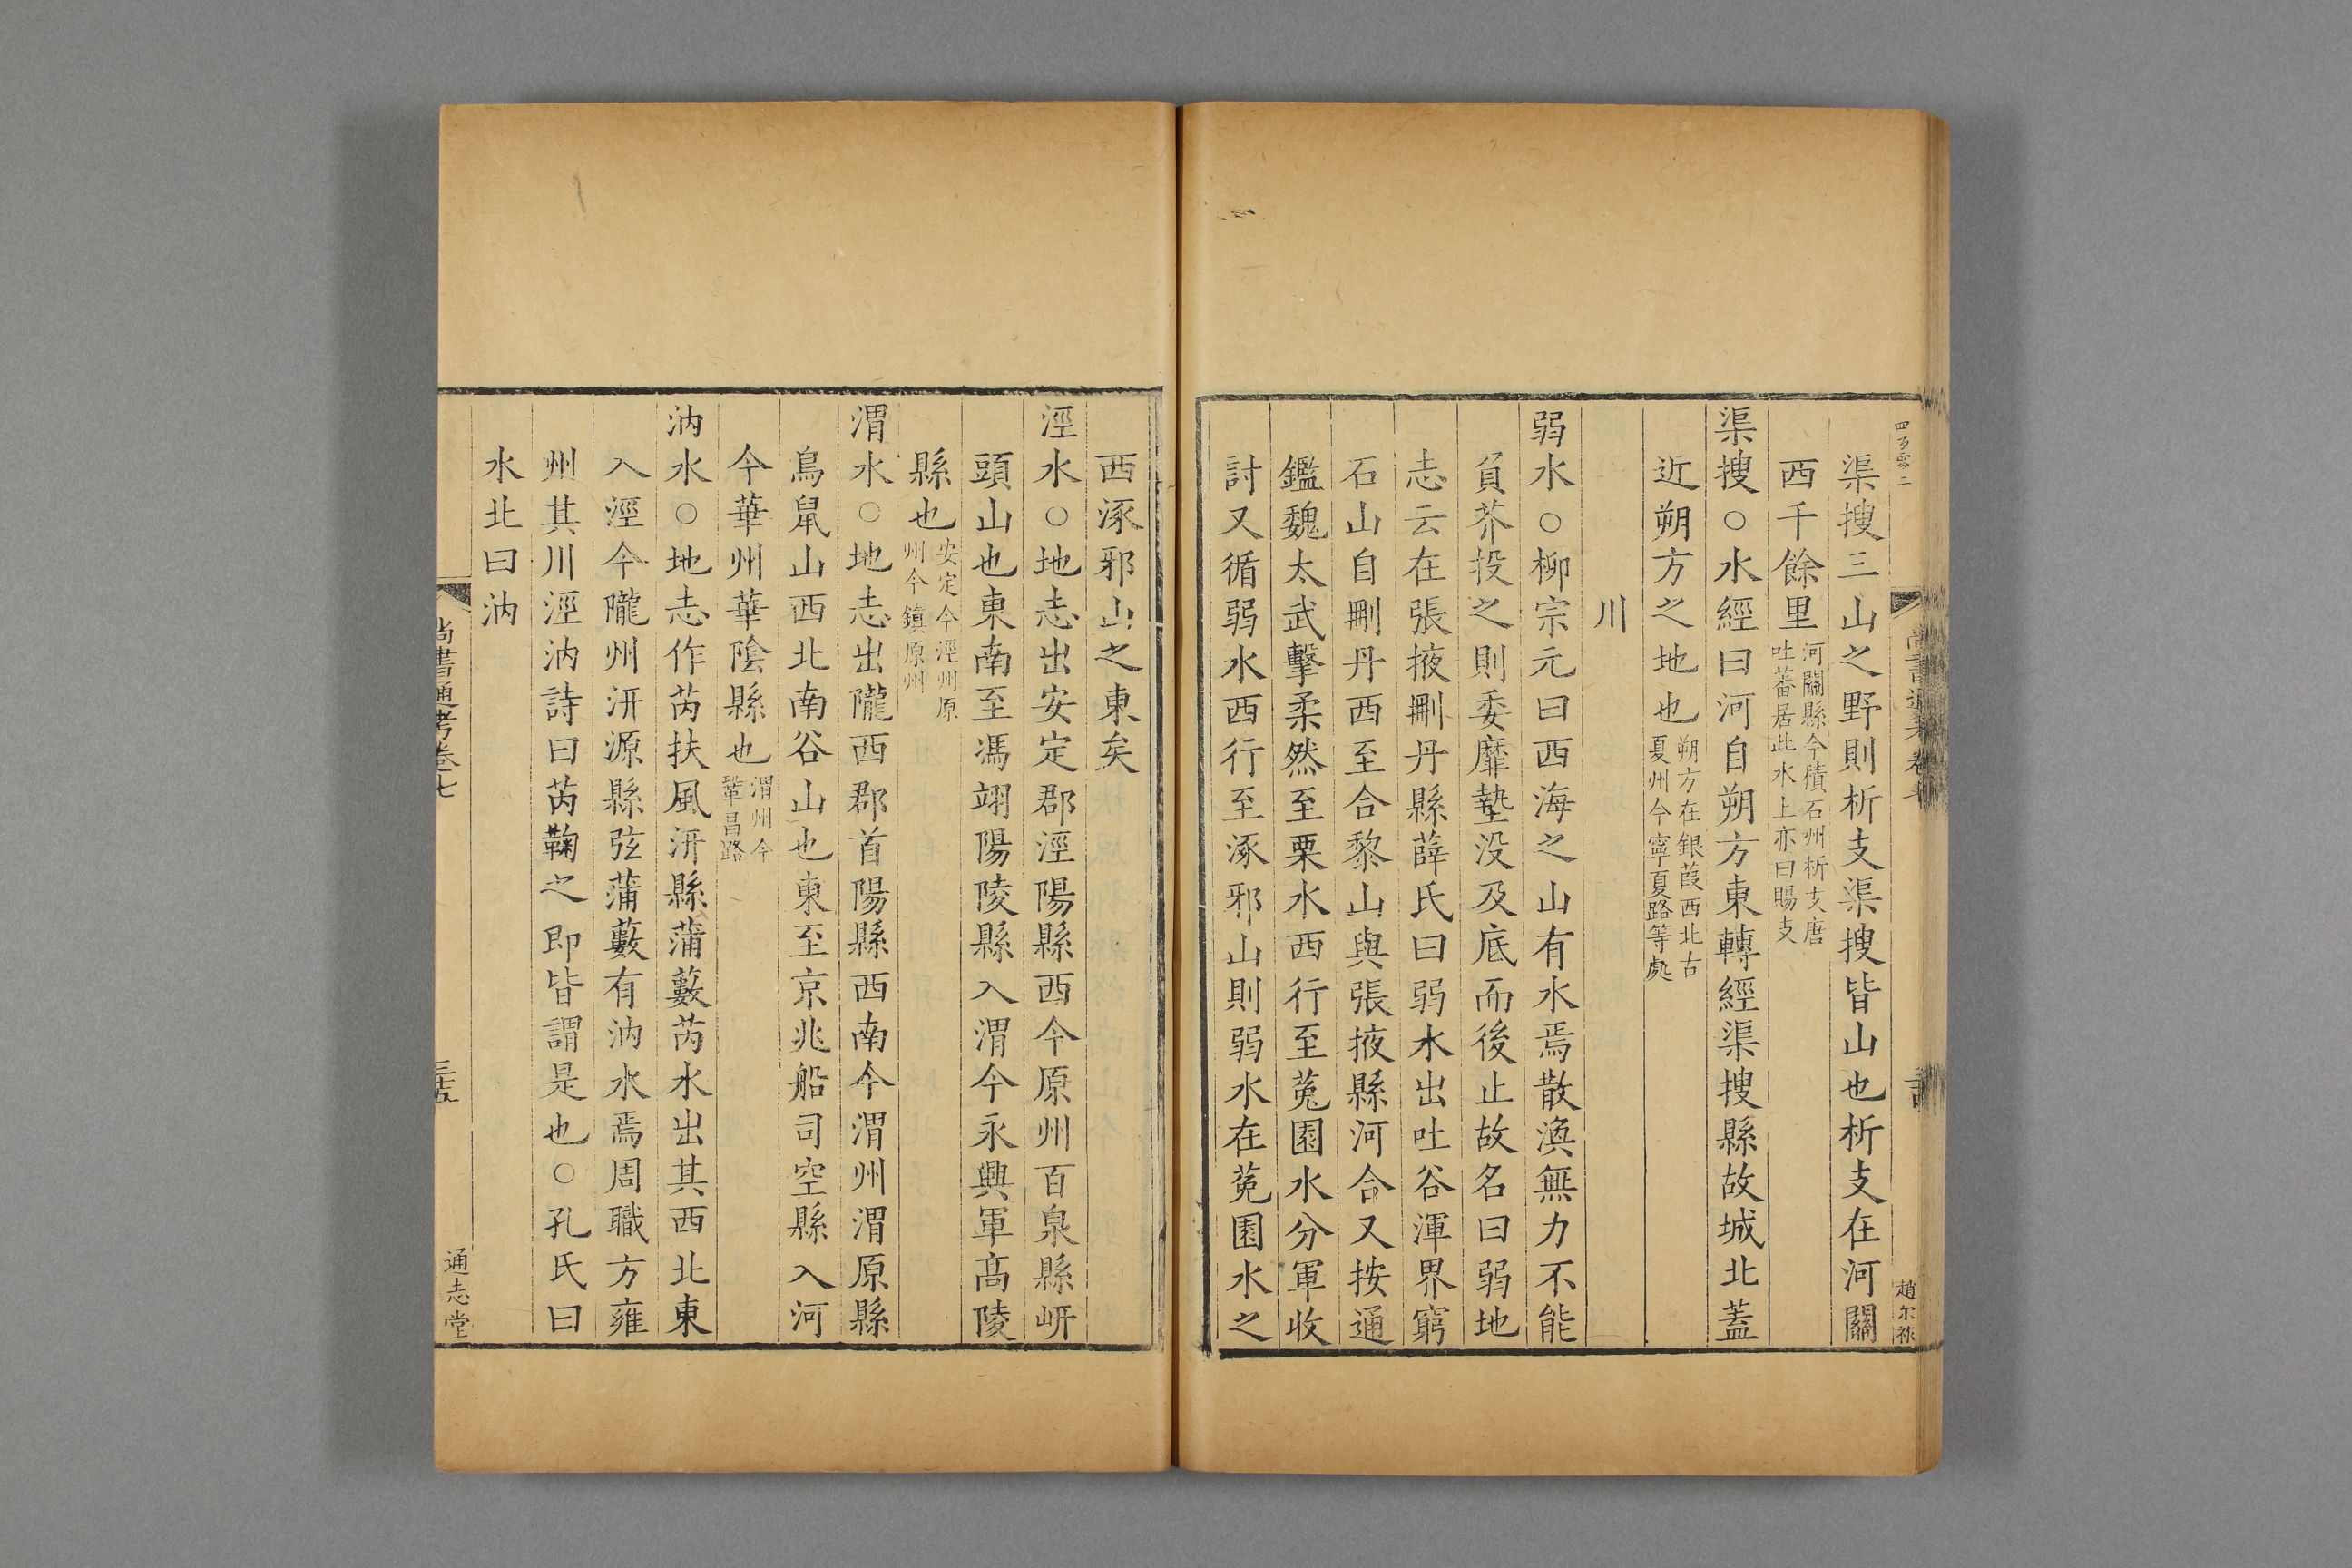 渠搜三山之野則析支渠搜皆山也析支在河關
西千餘里河關縣今積石州析支唐吐蕃居此水上亦曰賜支
渠搜○水經曰河自朔方東轉經渠搜縣故城北蓋
近朔方之地也朔方在銀葭西北古夏州今寧夏路等處
川
弱水○柳宗元曰西海之山有水焉散渙無力不能
負芥投之則委靡墊没及底而後止故名曰弱地
志云在張掖刪丹縣薛氏曰弱水出吐谷渾界窮
石山自刪丹西至合黎山與張掖縣河合又按通
鑑魏太武擊柔然至栗水西行至菟園水分軍收
討又循弱水西行至涿邪山則弱水在菟園水之
趙尔祿
西涿邪山之東矣
涇水○地志出安定郡涇陽縣西今原州百泉縣岍
頭山也東南至馮翊陽陵縣入渭今永興軍髙陵
縣也安定今涇州原州今鎮原州
渭水○地志出隴西郡首陽縣西南今渭州渭原縣
鳥鼠山西北南谷山也東至京兆船司空縣入河
今華州華陰縣也渭州今鞏昌路
汭水○地志作芮扶風汧縣蒲藪芮水出其西北東
入涇今隴州汧源縣弦蒲藪有汭水焉周職方雍
州其川涇汭詩曰芮鞫之即皆謂是也○孔氏曰
水北曰汭
尚書通考卷七
通志堂